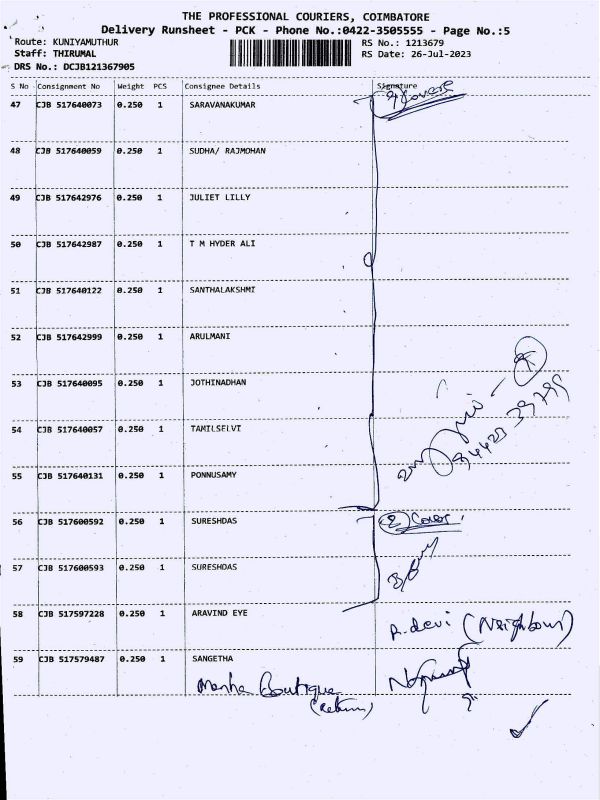 THE PROFESSIONAL COURIERS, COIMBATORE
Delivery Runsheet - PCK - Phone No.:0422-3505555 - Page No.:5
Route: KUNIYAMUTHUR RS No.: 1213679
Staff: THIRUMAL RS Date: 26-Jul-2023
DRS No.: DCJB121367905
S No Consignment No Weight PCS Consignee Details Signature
47 CJB 517640073 0.250 1 SARAVANAKUMAR
48 CJB 517640059 0.250 1 SUDHA/ RAJMOHAN
49 CJB 517642976 0.250 1 JULIET LILLY
50 CJB 517642987 0.250 1 T M HYDER ALI
51 CJB 517640122 0.250 1 SANTHALAKSHMI
52 CJB 517642999 0.250 1 ARULMANI
53 CJB 517640095 0.250 1 JOTHINADHAN
54 CJB 517640057 0.250 1 TAMILSELVI
55 CJB 517640131 0.250 1 PONNUSAMY
56 CJB 517600592 0.250 1 SURESHDAS
57 CJB 517600593 0.250 1 SURESHDAS
58 CJB 517597228 0.250 1 ARAVIND EYE
R.devi (Neighbour)
59 CJB 517579487 0.250 1 SANGETHA
Boutique
(Return)